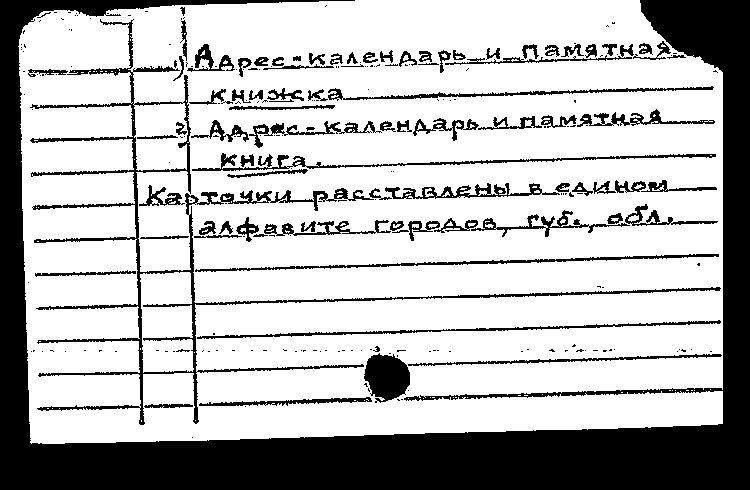 1) Адрес-календарь и памятная
книжка
2) Адрес-календарь и памятная
книга.
Карточки расставлены в едином
алфавите городов, губ., обл.